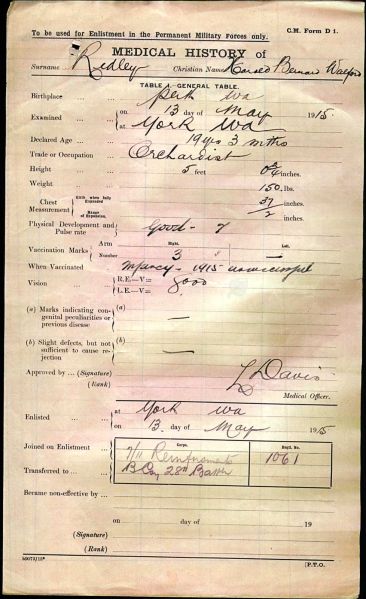 To be used for Enlistment in the Permanent Military Forces only. C.M. Form D 1.
MEDICAL HISTORY of
Surname Ridley Christian Name Bernard
TABLE I. GENERAL TABLE.
Birthplace ... Perth Wa
Examined ... on 13 day of May 1915.
at York Wa
Declared Age ... 19 yrs 3 mths
Trade or Occupation ... Orchardist
Height ... 5 feet 0 3/4 inches
Weight ... 150 lbs.
Chest Measurement Girth when fully Expanded 37 inches
Range of Expansion 2 inches
Physical Development and Pulse rate Good
Vaccination Marks Arm Right. Left.
Number 3
When Vaccinated ... Infancy - 1915
Vision ... R.E.—V= good
L.E.—V=
(a) Marks indicating congenital peculiarities or previous disease (a) —
(b) Slight defects, but not sufficient to cause rejection (b) —
Approved by ... (Signature) L Davis
(Rank) Medical Officer.
Enlisted ... at York Wa
on 13 day of May 1915
Corps. Regtl. No.
Joined on Enlistment ... Reinforcements 1061
Transferred to ... B Coy 28th Battn
Became non-effective by ...
on day of 19
(Signature)
(Rank)
[P.T.O.